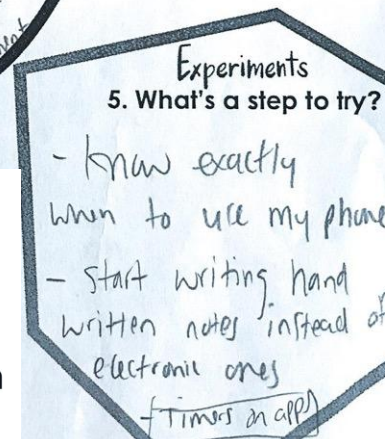 Experiments
5. What's a step to try?
- Know exactly
when to use my phone
- Start writing hand
written notes instead of
electronic ones
- Timers on apps